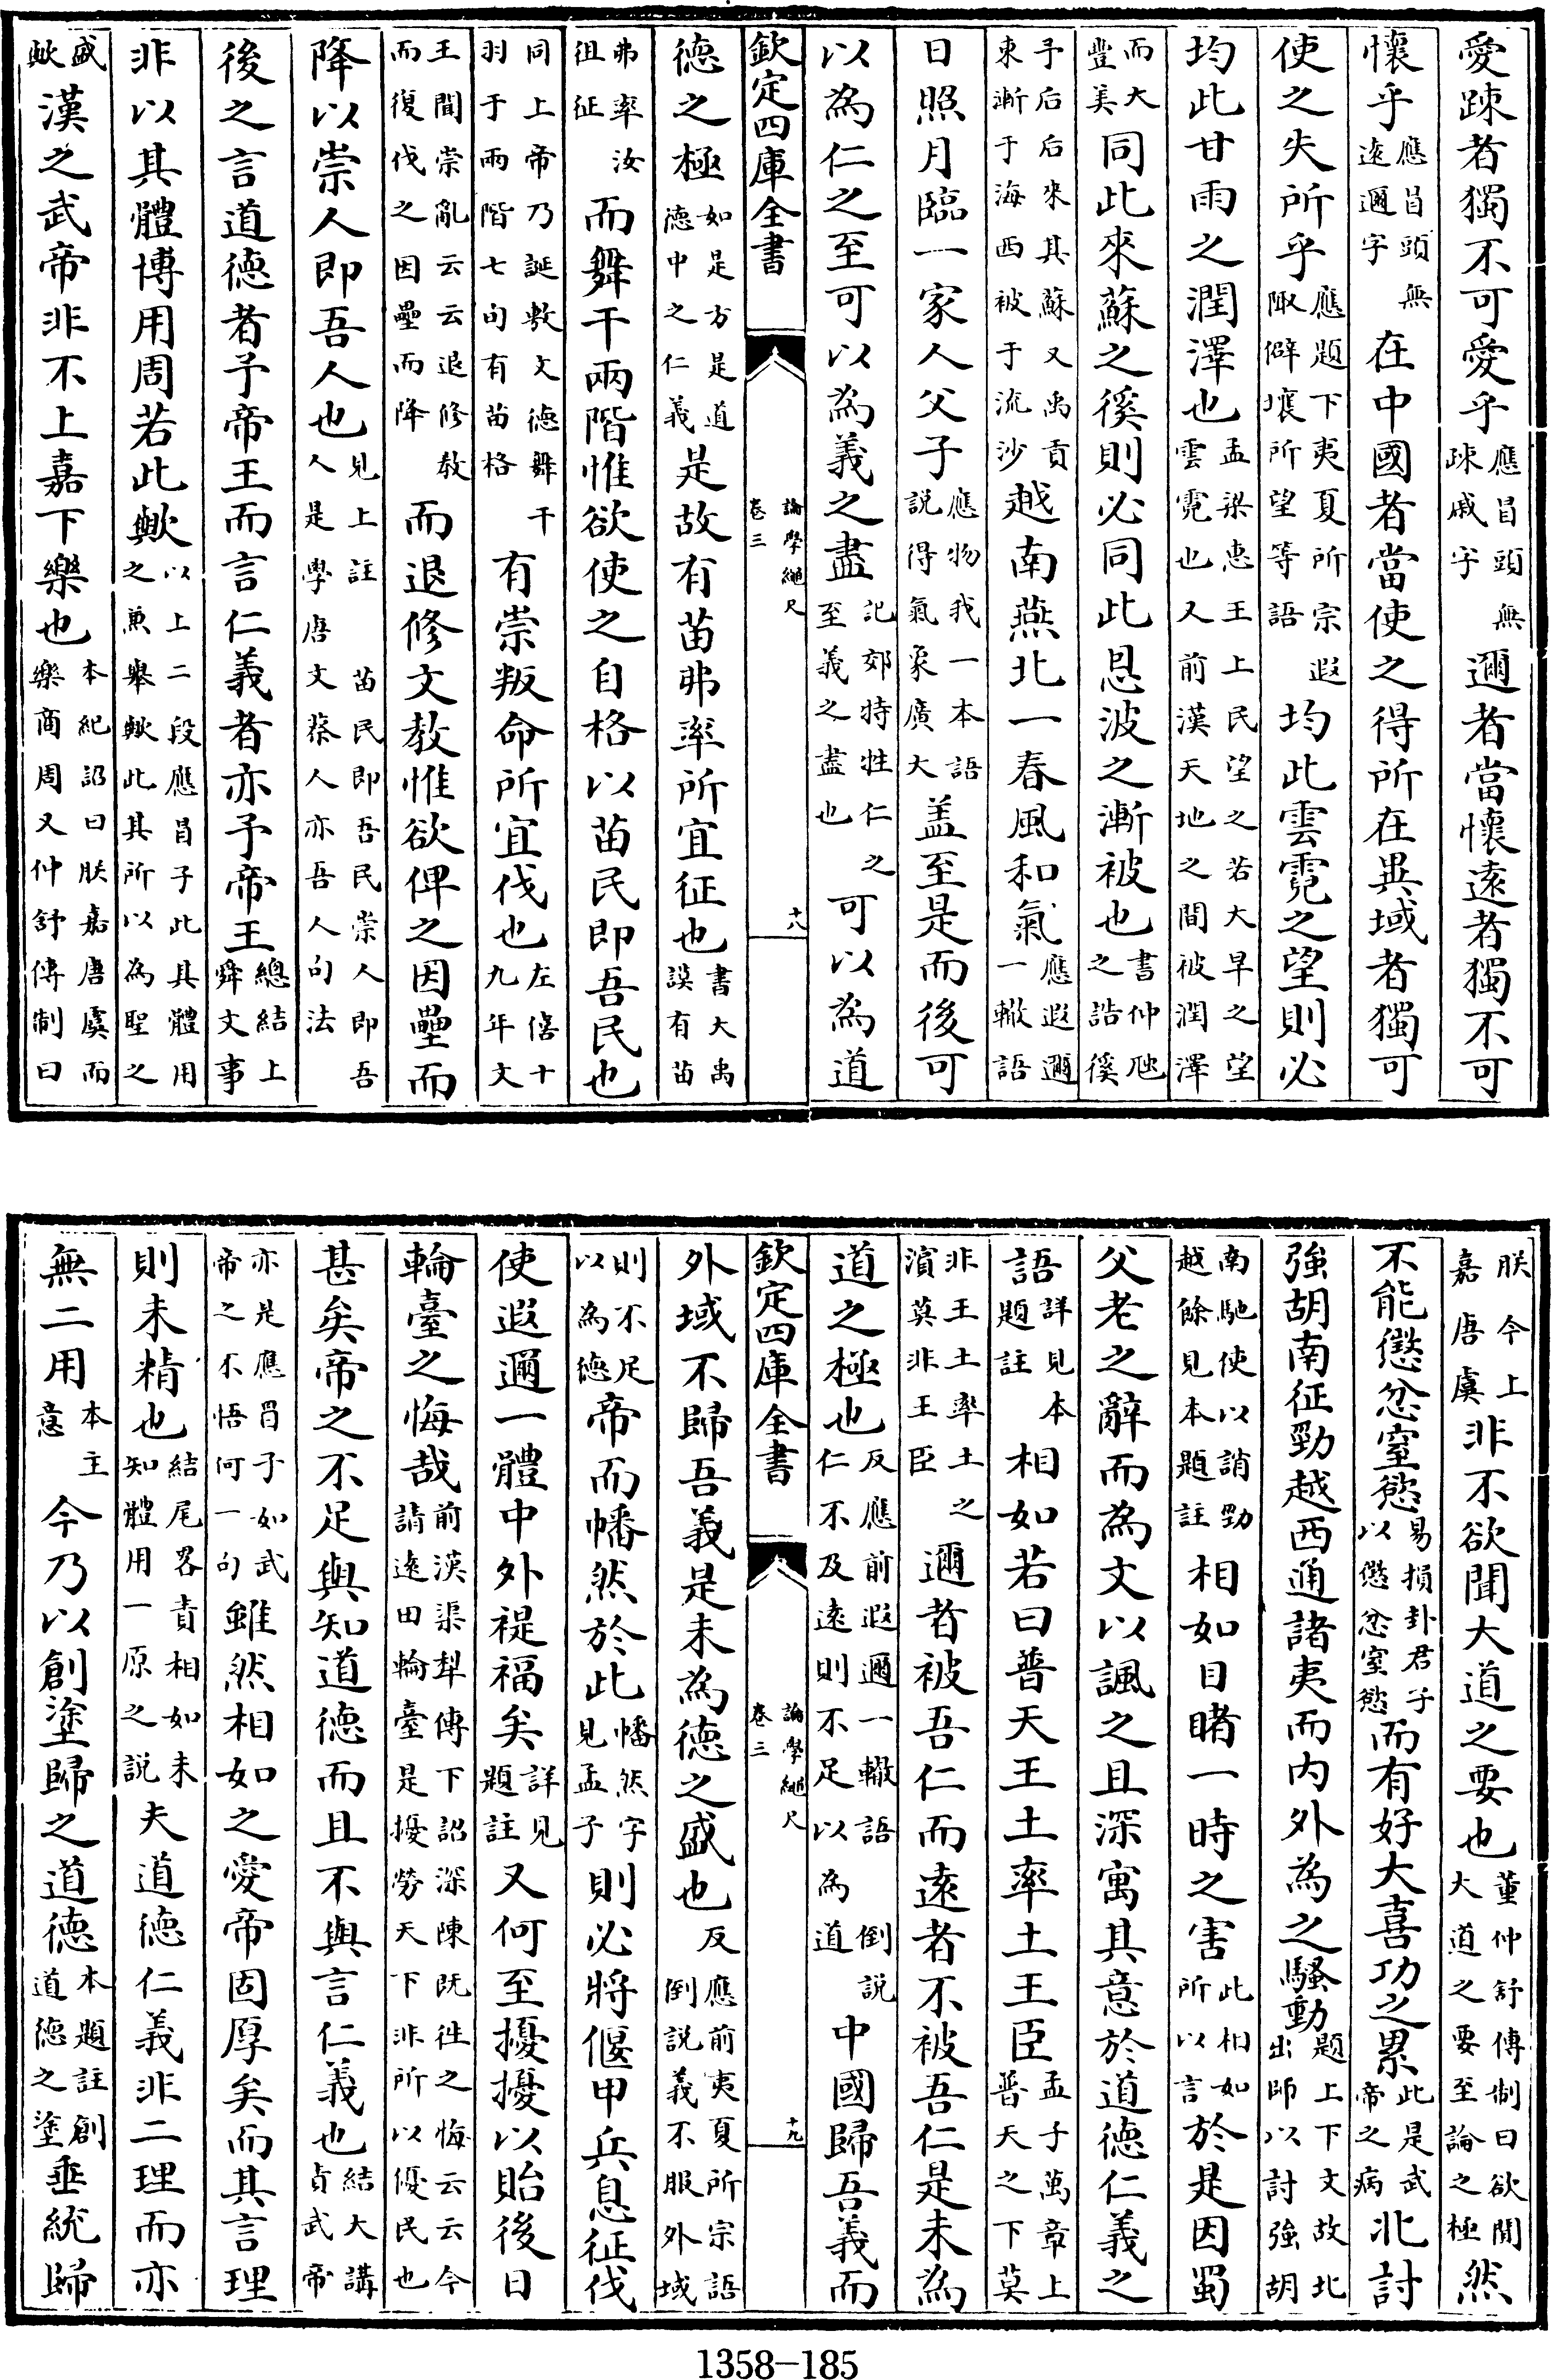 愛踈者獨不可愛乎應冒頭無踈戚字邇者當懷遠者獨不可
懷乎應冒頭無遠邇字在中國者當使之得所在異域者獨可
使之失所乎應題下夷夏所宗遐陬僻壤所望等語均此雲霓之望則必
均此甘雨之潤澤也孟梁惠王上民望之若大旱之望雲霓也又前漢天地之間被潤澤
而大豐美同此來蘇之徯則必同此恩波之漸被也書仲虺之誥徯
予后后來其蘇又禹貢東漸于海西被于流沙越南燕北一春風和氣應遐邇一轍語
日照月臨一家人父子應物我一本語說得氣象廣大盖至是而後可
以為仁之至可以為義之盡記郊特牲仁之至義之盡也可以為道
欽定四庫全書
論學繩尺
卷三
十八
德之極如是方是道德中之仁義是故有苗弗率所宜征也書大禹謨有苗
弗率汝徂征而舞干兩階惟欲使之自格以苗民即吾民也
同上帝乃誕敷文德舞干羽于兩階七旬有苗格有崇叛命所宜伐也左僖十九年文
王聞崇亂云云退修教而復伐之因壘而降而退修文教惟欲俾之因壘而
降以崇人即吾人也見上註苗民即吾民崇人即吾人是學唐文蔡人亦吾人句法
後之言道德者予帝王而言仁義者亦予帝王總結上舜文事
非以其體博用周若此歟以上二段應冒子此其體用之兼舉歟此其所以為聖之
盛歟漢之武帝非不上嘉下樂也本紀詔曰朕嘉唐虞而樂商周又仲舒傳制曰
朕今上嘉唐虞非不欲聞大道之要也董仲舒傳制曰欲聞大道之要至論之極然
不能懲忿窒慾易損卦君子以懲忿窒慾而有好大喜功之累此是武帝之病北討
強胡南征勁越西通諸夷而内外為之騷動題上下文故北出師以討強胡
南馳使以誚勁越餘見本題註相如目睹一時之害此相如所以言於是因蜀
父老之辭而為文以諷之且深寓其意於道德仁義之
語詳見本題註相如若曰普天王土率土王臣孟子萬章上普天之下莫
非王土率土之濱莫非王臣邇者被吾仁而遠者不被吾仁是未為
道之極也反應前遐邇一轍語仁不及遠則不足以為道倒說中國歸吾義而
欽定四庫全書
論學繩尺
卷三
十九
外域不歸吾義是未為德之盛也反應前夷夏所宗語倒說義不服外域
則不足以為德帝而幡然於此幡然字見孟子則必將偃甲兵息征伐
使遐邇一體中外禔福矣詳見題註又何至擾擾以貽後日
輪臺之悔哉前漢渠犁傳下詔深陳既徃之悔云云今請遠田輪臺是擾勞天下非所以優民也
甚矣帝之不足與知道德而且不與言仁義也結大講貞武帝
亦是應冒子如武帝之不悟何一句雖然相如之愛帝固厚矣而其言理
則未精也結尾畧責相如未知體用一原之說夫道德仁義非二理而亦
無二用本主意今乃以創塗歸之道德本題註創道德之塗垂統歸
1358-185